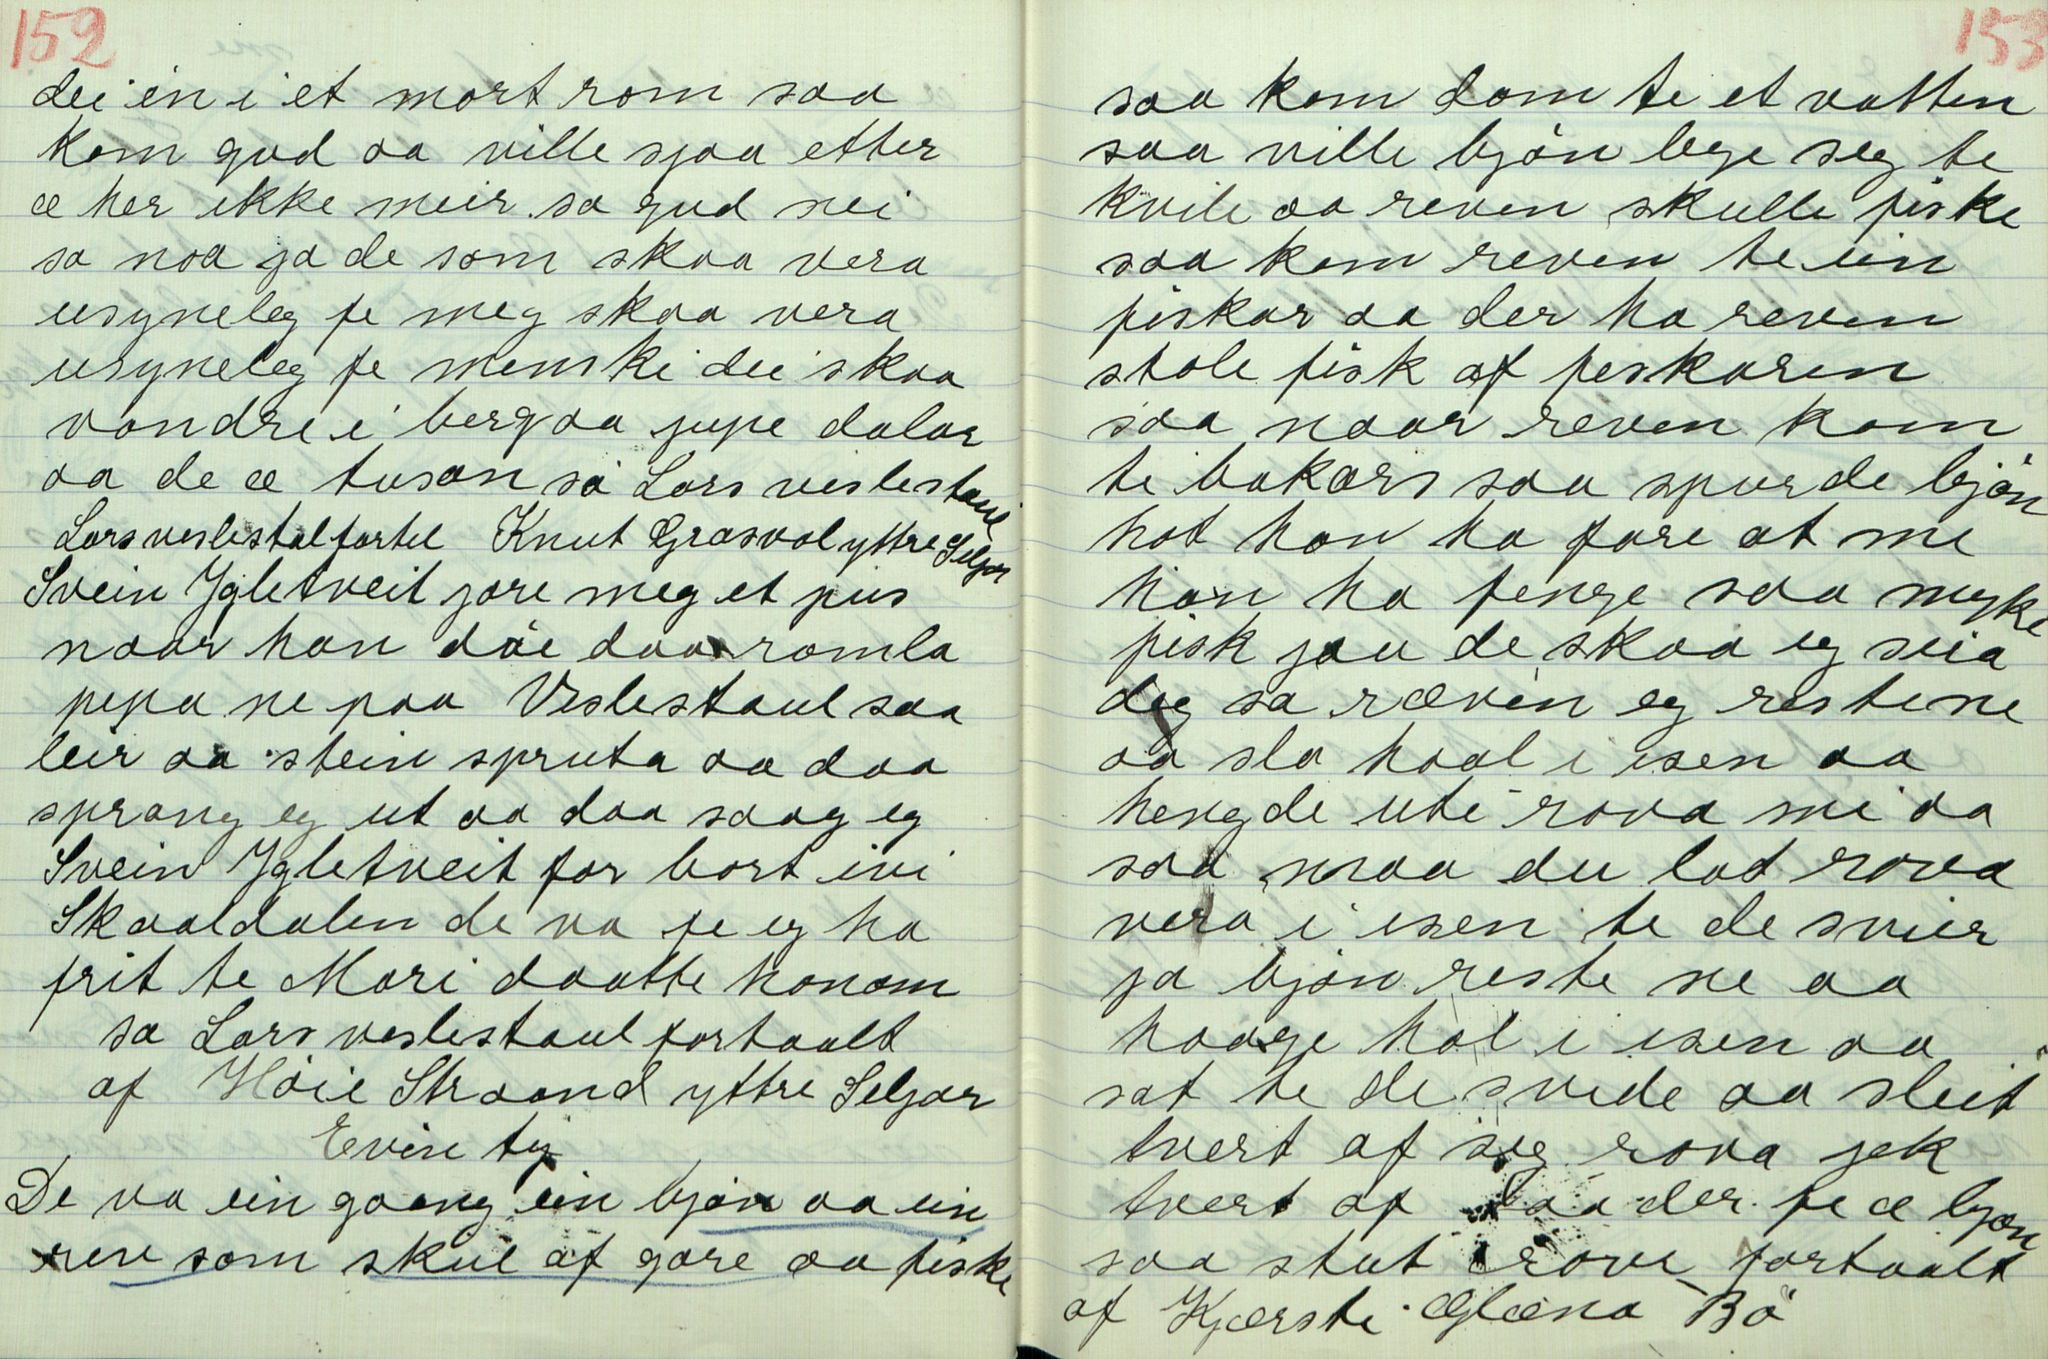 152
dei in i et mørt rom saa
kom gud aa ville sjaa etter
æ her ikke meir sa gud nei
sa noa ja de som skaa vera
usyneleg fe meg skaa vera
usyneleg fe menski dei skaa
vandre i berg aa jupe dalar
aa de æ tusan sa Lars veslestaul
Lars veslestal fortel Knut Grasvol yttre Seljor
Svein Ygletveit jore meg et pus
naar han døe daa ramla
pepa ne paa Veslestaul saa
leir aa stein spruta aa daa
sprang eg ut aa daa saag eg
Svein Ygletveit for bort ivi
Skaaldalen de va fe eg ha
frit te Mari daatte honom
sa Lars veslestaul fortaalt
af Høie Straand yttre Seljor
Evin ty
De va ein gaang ein bjøn aa ein
rev som skul af gare aa fiske
153
saa kom dom te et vatten
saa ville bjøn lege seg te
kvile aa reven skulle fiske
saa kom reven te ein
fiskar aa der ha reven
stole fisk af feskaren
saa naar reven kom
te bakars saa spurde bjøn
hot han ha fare at me
han ha fenge saa myke
fisk jau de skaa eg seia
deg sa ræven eg restene
aa sla haal i isen aa
hengde uti rova mi aa
saa maa du lat rova
vera i isen te de svier
ja bjøn reste ne aa
haage hal i isen aa
sat te de svide aa sleit
tvert af seg rova jek
tvert af daa der fe æ bjøn
saa stut i rove fortaalt
af Kjærste Æglæna Bø